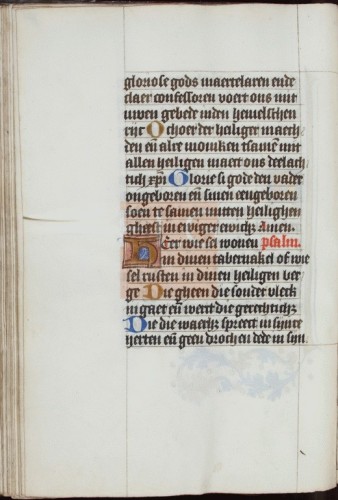 gloriose gods maertelaren ende
claer confessoren voert ons mit
uwen gebede inden hemelschen
rijc O choer der heiliger maech
den eñ alre moniken tsamen mit
allen heiligen maect ons deelach
tich xp̄i Glorie si gode den vader
ongeboren eñ sinen eengeboren
soen te samen mitten heilighen
gheest in ewiger ewich; Amen.
Heer wie sel wonen psalm.
in dinen tabernakel of wie
sel rusten in dinen heiligen ber
ge Die gheen die sonder vleck
in gaet eñ werct die gerechtich;
Die die waerh; spreect in sijnre
herten eñ geen drochen dede in sijn